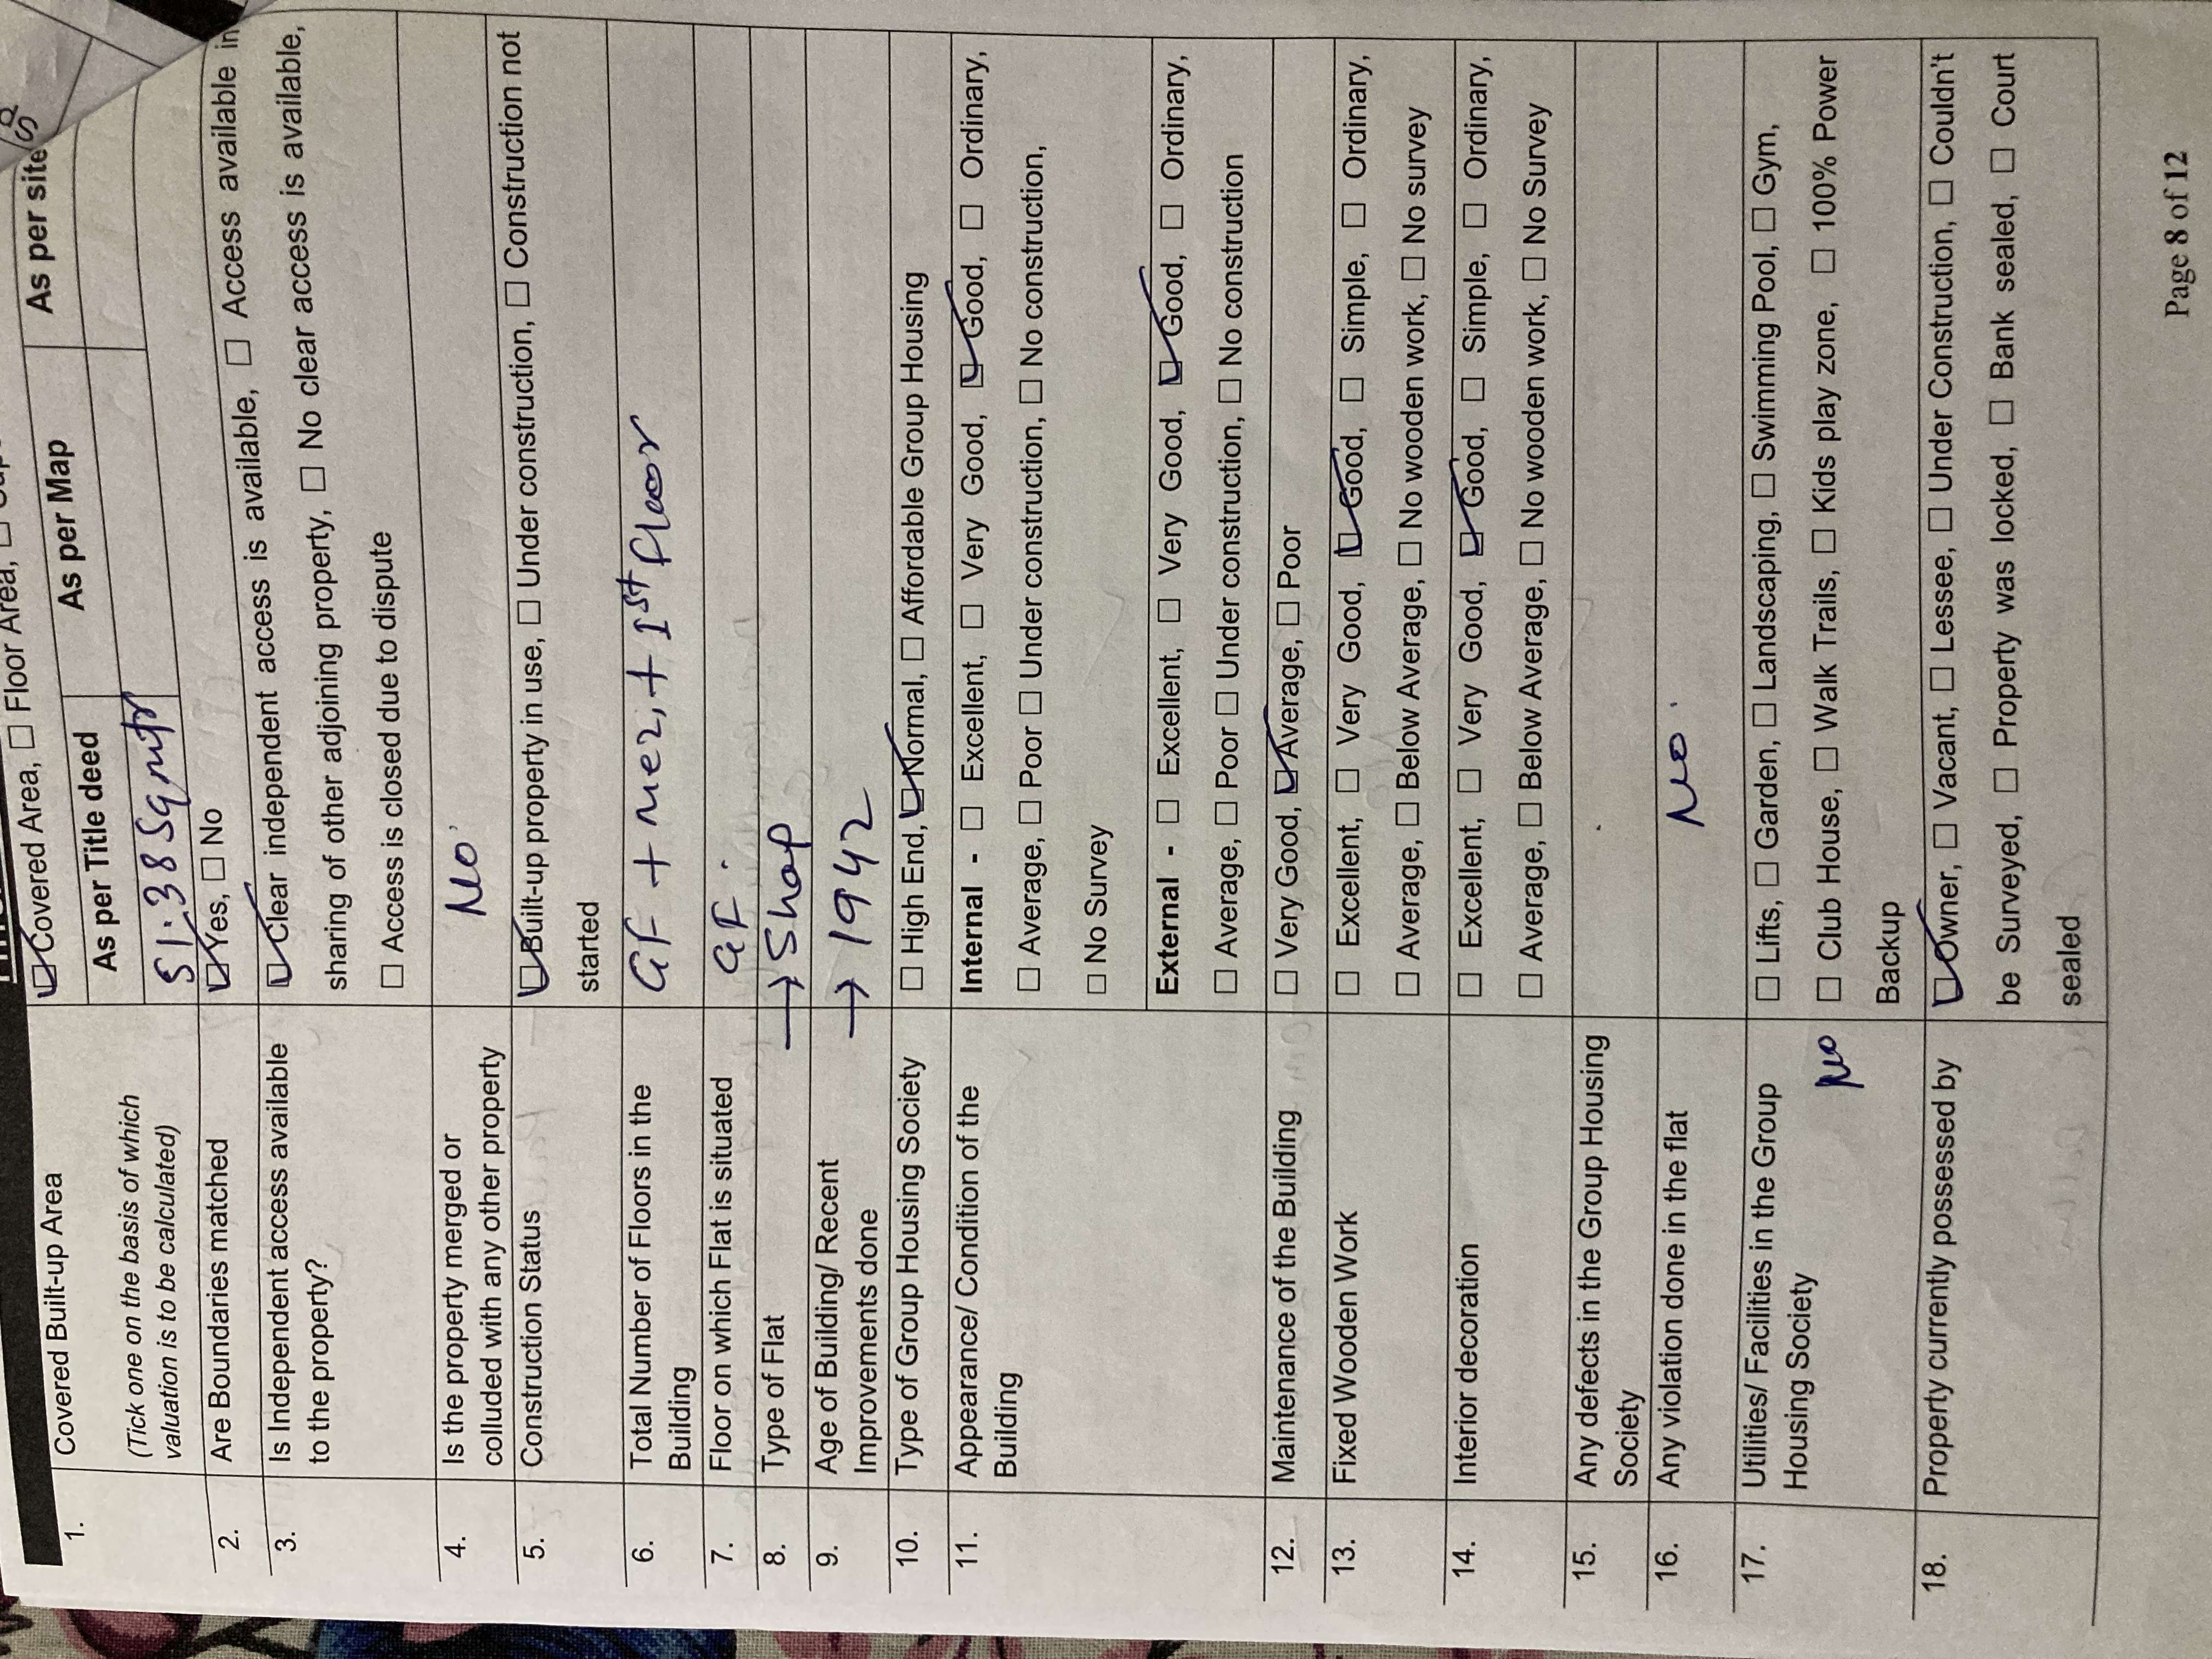 1. Covered Built-up Area
(Tick one on the basis of which
valuation is to be calculated)
☑ Covered Area, ☐ Floor Area, ☐
As per Title deed As per Map As per site
51.38 Sqmtr
2. Are Boundaries matched ☑ Yes, ☐ No
3. Is Independent access available
to the property?
☑ Clear independent access is available, ☐ Access available in
sharing of other adjoining property, ☐ No clear access is available,
☐ Access is closed due to dispute
4. Is the property merged or
colluded with any other property
No
5. Construction Status
☑ Built-up property in use, ☐ Under construction, ☐ Construction not
started
6. Total Number of Floors in the
Building
GF + Mez, + Ist floor
7. Floor on which Flat is situated GF.
8. Type of Flat → Shop
9. Age of Building/ Recent
Improvements done
→ 1942
10. Type of Group Housing Society ☐ High End, ☑ Normal, ☐ Affordable Group Housing
11. Appearance/ Condition of the
Building
Internal - ☐ Excellent, ☐ Very Good, ☑ Good, ☐ Ordinary,
☐ Average, ☐ Poor ☐ Under construction, ☐ No construction,
☐ No Survey
External - ☐ Excellent, ☐ Very Good, ☑ Good, ☐ Ordinary,
☐ Average, ☐ Poor ☐ Under construction, ☐ No construction
12. Maintenance of the Building ☐ Very Good, ☑ Average, ☐ Poor
13. Fixed Wooden Work
☐ Excellent, ☐ Very Good, ☑ Good, ☐ Simple, ☐ Ordinary,
☐ Average, ☐ Below Average, ☐ No wooden work, ☐ No survey
14. Interior decoration
☐ Excellent, ☐ Very Good, ☑ Good, ☐ Simple, ☐ Ordinary,
☐ Average, ☐ Below Average, ☐ No wooden work, ☐ No Survey
15. Any defects in the Group Housing
Society
16. Any violation done in the flat No.
17. Utilities/ Facilities in the Group
Housing Society No
☐ Lifts, ☐ Garden, ☐ Landscaping, ☐ Swimming Pool, ☐ Gym,
☐ Club House, ☐ Walk Trails, ☐ Kids play zone, ☐ 100% Power
Backup
18. Property currently possessed by
☑ Owner, ☐ Vacant, ☐ Lessee, ☐ Under Construction, ☐ Couldn't
be Surveyed, ☐ Property was locked, ☐ Bank sealed, ☐ Court
sealed
Page 8 of 12